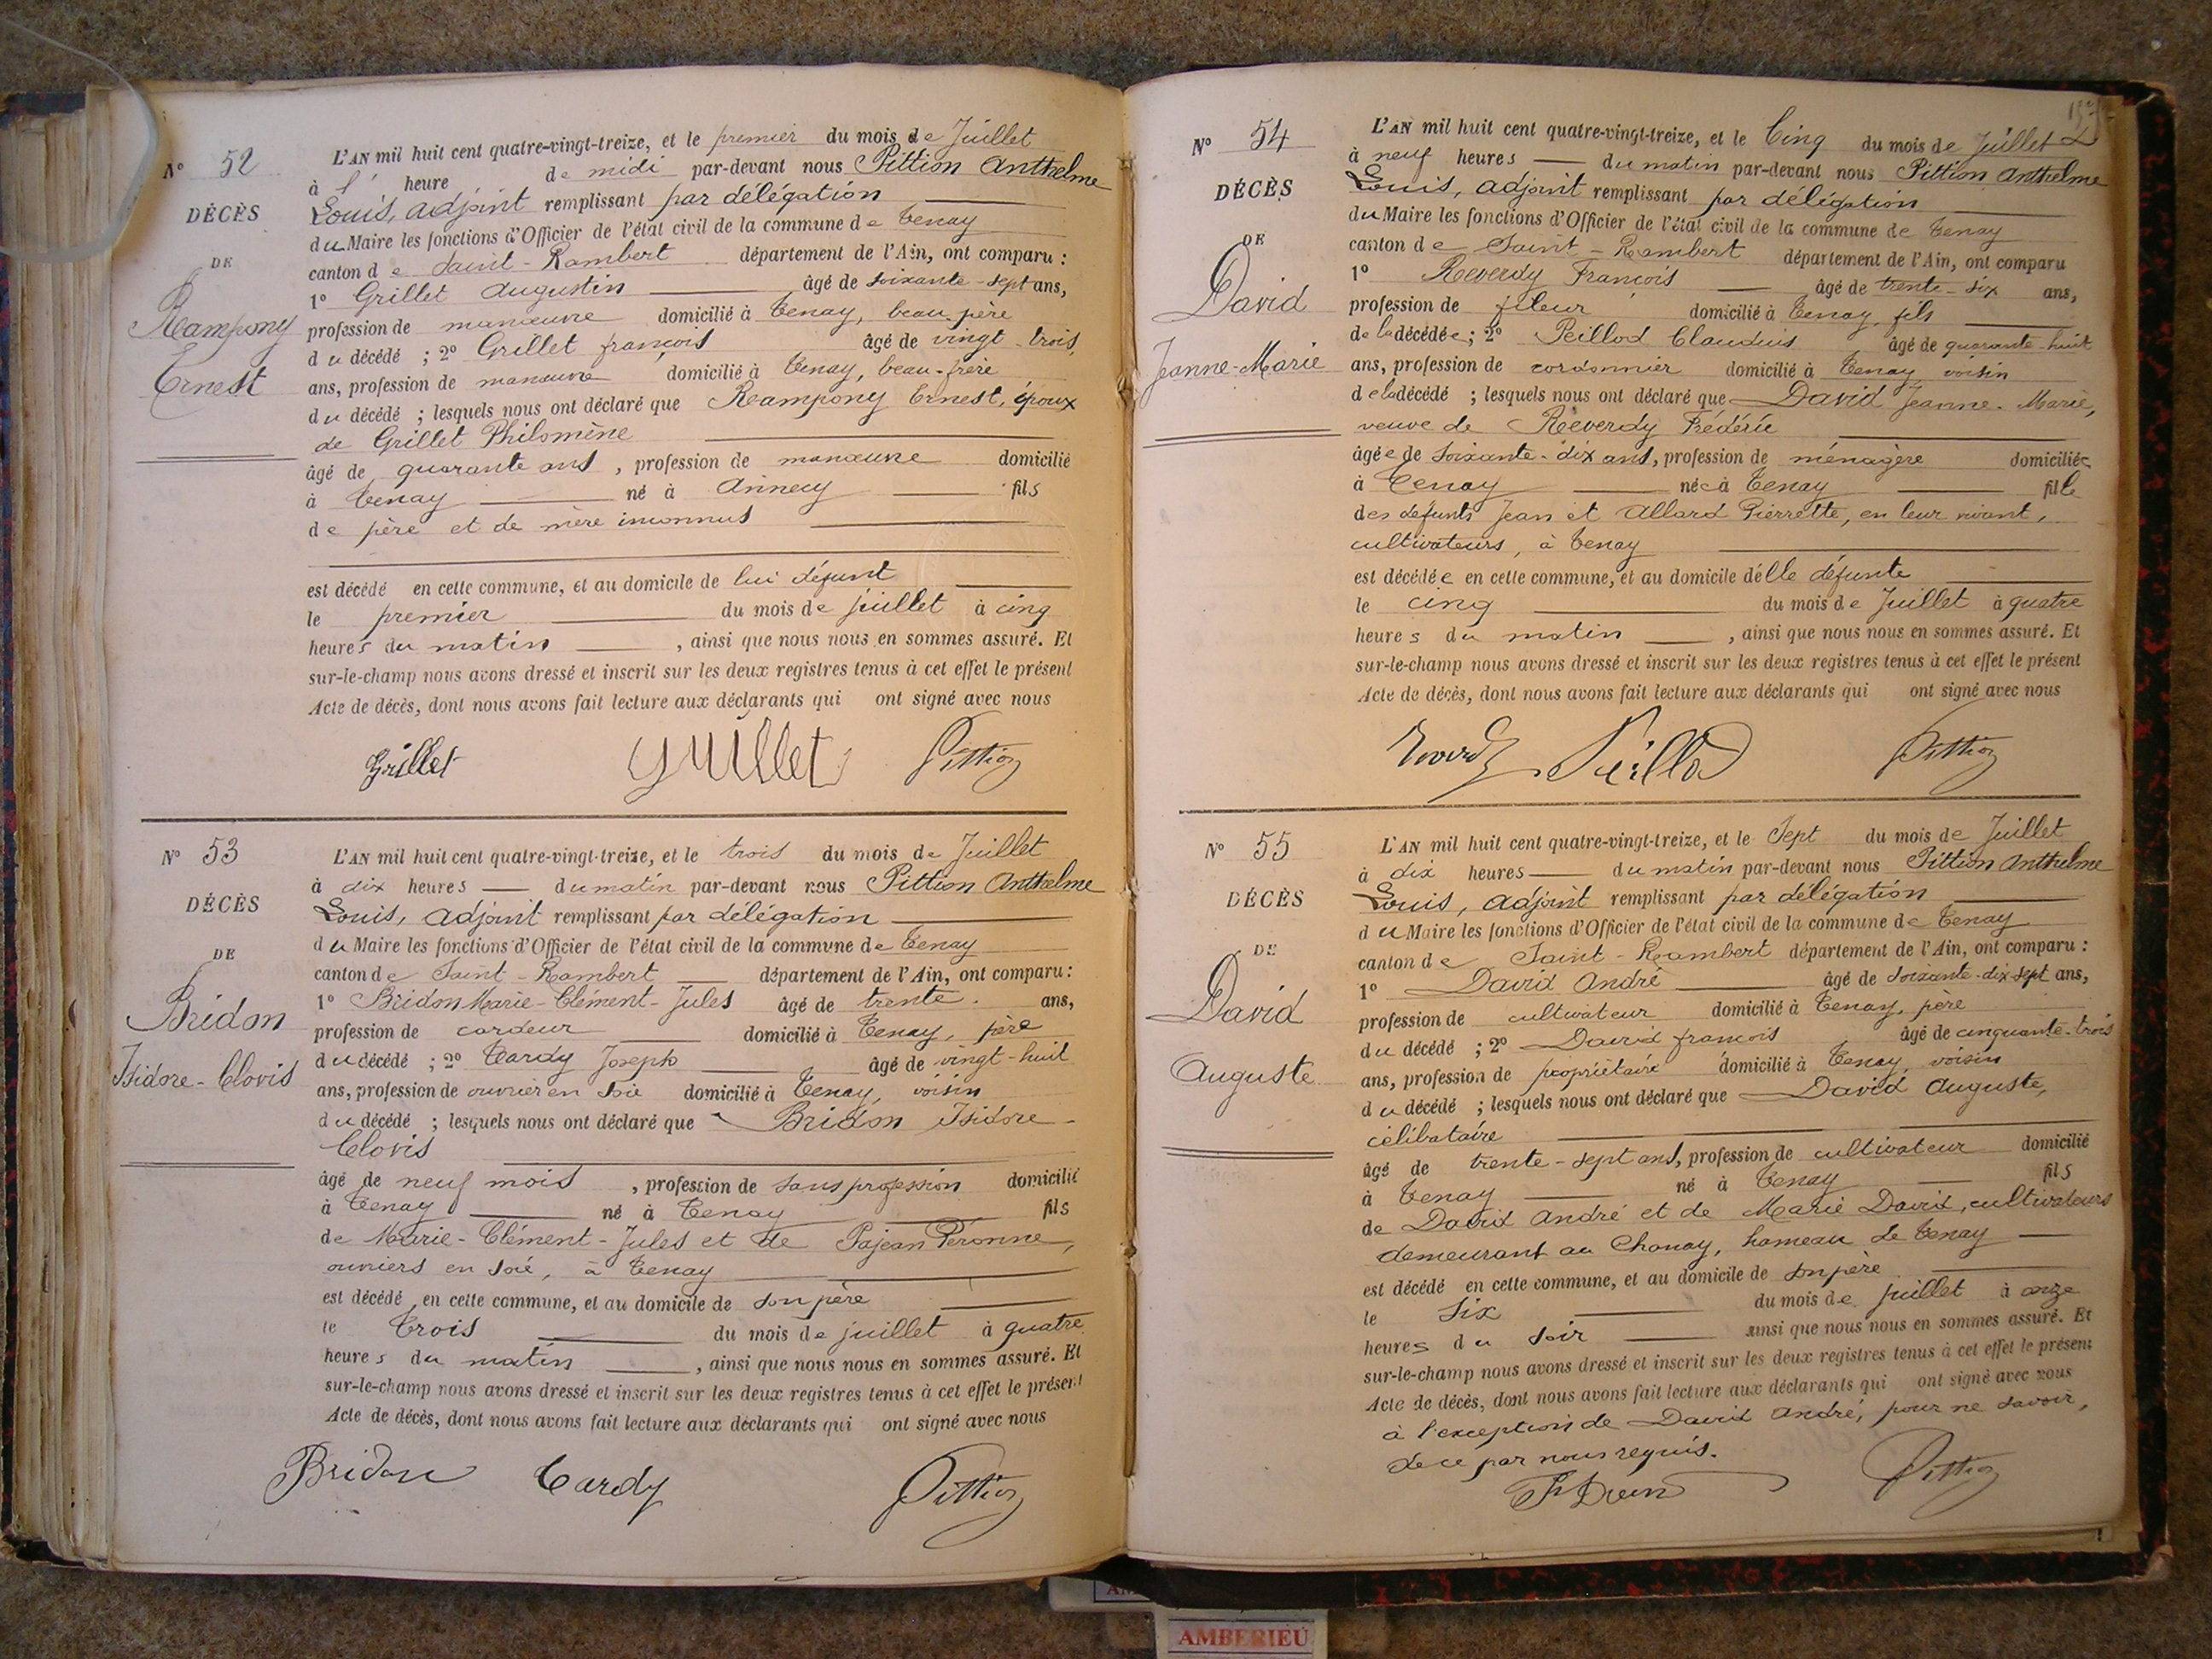 N° 52
DÉCÈS
DE
Rampony
Ernest
L'AN mil huit cent quatre-vingt-treize, et le premier du mois de Juillet
à l' heure de midi par-devant nous Pittion Anthelme
Louis, adjoint remplissant par délégation
du Maire les fonctions d'Officier de l'état civil de la commune de Tenay
canton de Saint-Rambert département de l'Ain, ont comparu :
1° Grillet Augustin âgé de soixante-sept ans,
profession de manœuvre domicilié à Tenay, beau-père
du décédé ; 2° Grillet françois âgé de vingt-trois
ans, profession de manœuvre domicilié à Tenay, beau-frère
du décédé ; lesquels nous ont déclaré que Rampony Ernest, époux
de Grillet Philomène
âgé de quarante ans, profession de manœuvre domicilié
à Tenay né à Annecy fils
de père et de mère inconnus
est décédé en cette commune, et au domicile de lui défunt
le premier du mois de juillet à cinq
heures du matin, ainsi que nous nous en sommes assuré. Et
sur-le-champ nous avons dressé et inscrit sur les deux registres tenus à cet effet le présent
Acte de décès, dont nous avons fait lecture aux déclarants qui ont signé avec nous
Grillet Guillet Pittion
N° 53
DÉCÈS
DE
Bridon
Isidore-Clovis
L'AN mil huit cent quatre-vingt-treize, et le trois du mois de Juillet
à dix heures du matin par-devant nous Pittion Anthelme
Louis, adjoint remplissant par délégation
du Maire les fonctions d'Officier de l'état civil de la commune de Tenay
canton de Saint-Rambert département de l'Ain, ont comparu :
1° Bridon Marie-Clément-Jules âgé de trente ans,
profession de cardeur domicilié à Tenay, père
du décédé ; 2° Tardy Joseph âgé de vingt-huit
ans, profession de ouvrier en soie domicilié à Tenay, voisin
du décédé ; lesquels nous ont déclaré que Bridon Isidore-
Clovis
âgé de neuf mois, profession de sans profession domicilié
à Tenay né à Tenay fils
de Marie-Clément-Jules et de Pajean Péronne,
ouvriers en soie, à Tenay
est décédé en cette commune, et au domicile de son père
le trois du mois de juillet à quatre
heures du matin, ainsi que nous nous en sommes assuré. Et
sur-le-champ nous avons dressé et inscrit sur les deux registres tenus à cet effet le présent
Acte de décès, dont nous avons fait lecture aux déclarants qui ont signé avec nous
Bridon Tardy Pittion
N° 54
DÉCÈS
DE
David
Jeanne-Marie
L'AN mil huit cent quatre-vingt-treize, et le Cinq du mois de Juillet
à neuf heures du matin par-devant nous Pittion Anthelme
Louis, adjoint remplissant par délégation
du Maire les fonctions d'Officier de l'état civil de la commune de Tenay
canton de Saint-Rambert département de l'Ain, ont comparu
1° Reverdy François âgé de trente-six ans,
profession de fileur domicilié à Tenay, fils
de la décédée ; 2° Peillod Claudius âgé de quarante-huit
ans, profession de cordonnier domicilié à Tenay voisin
de la décédé ; lesquels nous ont déclaré que David Jeanne-Marie,
veuve de Réverdy Frédéric
âgée de soixante-dix ans, profession de ménagère domiciliée
à Tenay née à Tenay fille
des défunts Jean et Allard Pierrette, en leur vivant,
cultivateurs, à Tenay
est décédée en cette commune, et au domicile d'elle défunte
le cinq du mois de Juillet à quatre
heures du matin, ainsi que nous nous en sommes assuré. Et
sur-le-champ nous avons dressé et inscrit sur les deux registres tenus à cet effet le présent
Acte de décès, dont nous avons fait lecture aux déclarants qui ont signé avec nous
Peillod Pittion
N° 55
DÉCÈS
DE
David
Auguste
L'AN mil huit cent quatre-vingt-treize, et le Sept du mois de Juillet
à dix heures du matin par-devant nous Pittion Anthelme
Louis, adjoint remplissant par délégation
du Maire les fonctions d'Officier de l'état civil de la commune de Tenay
canton de Saint-Rambert département de l'Ain, ont comparu :
1° David André âgé de soixante-dix-sept ans,
profession de cultivateur domicilié à Tenay, père
du décédé ; 2° David françois âgé de cinquante-trois
ans, profession de propriétaire domicilié à Tenay, voisin
du décédé ; lesquels nous ont déclaré que David Auguste,
célibataire
âgé de trente-sept ans, profession de cultivateur domicilié
à Tenay né à Tenay fils
de David André et de Marie David, cultivateurs
demeurant au Chanay, hameau de Tenay
est décédé en cette commune, et au domicile de son père
le six du mois de juillet à onze
heures du soir ainsi que nous nous en sommes assuré. Et
sur-le-champ nous avons dressé et inscrit sur les deux registres tenus à cet effet le présent
Acte de décès, dont nous avons fait lecture aux déclarants qui ont signé avec nous
à l'exception de David André, pour ne savoir,
de ce par nous requis.
Pittion
AMBERIEU